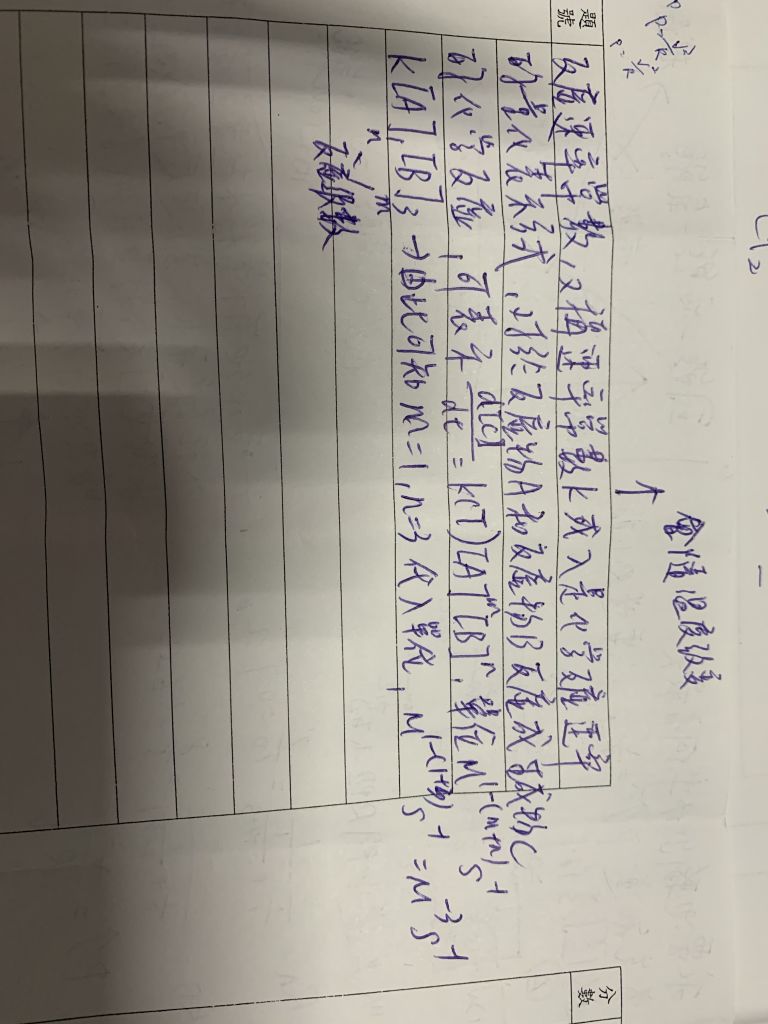 會隨溫度改變
↑
題號
反應速率常數,又稱速率常數k或λ是化學反應速率
的量化表示式,對於反應物A和反應物B反應成生成物C
的化學反應,可表示 d[C]/dt = k(T)[A]^m[B]^n,單位 M^1-(m+n) s^-1
k[A]^1[B]^3 → 由此可知 m=1, n=3 代入單位, M^1-(1+3) s^-1 = M^-3 s^-1
n m
反應級數
分數